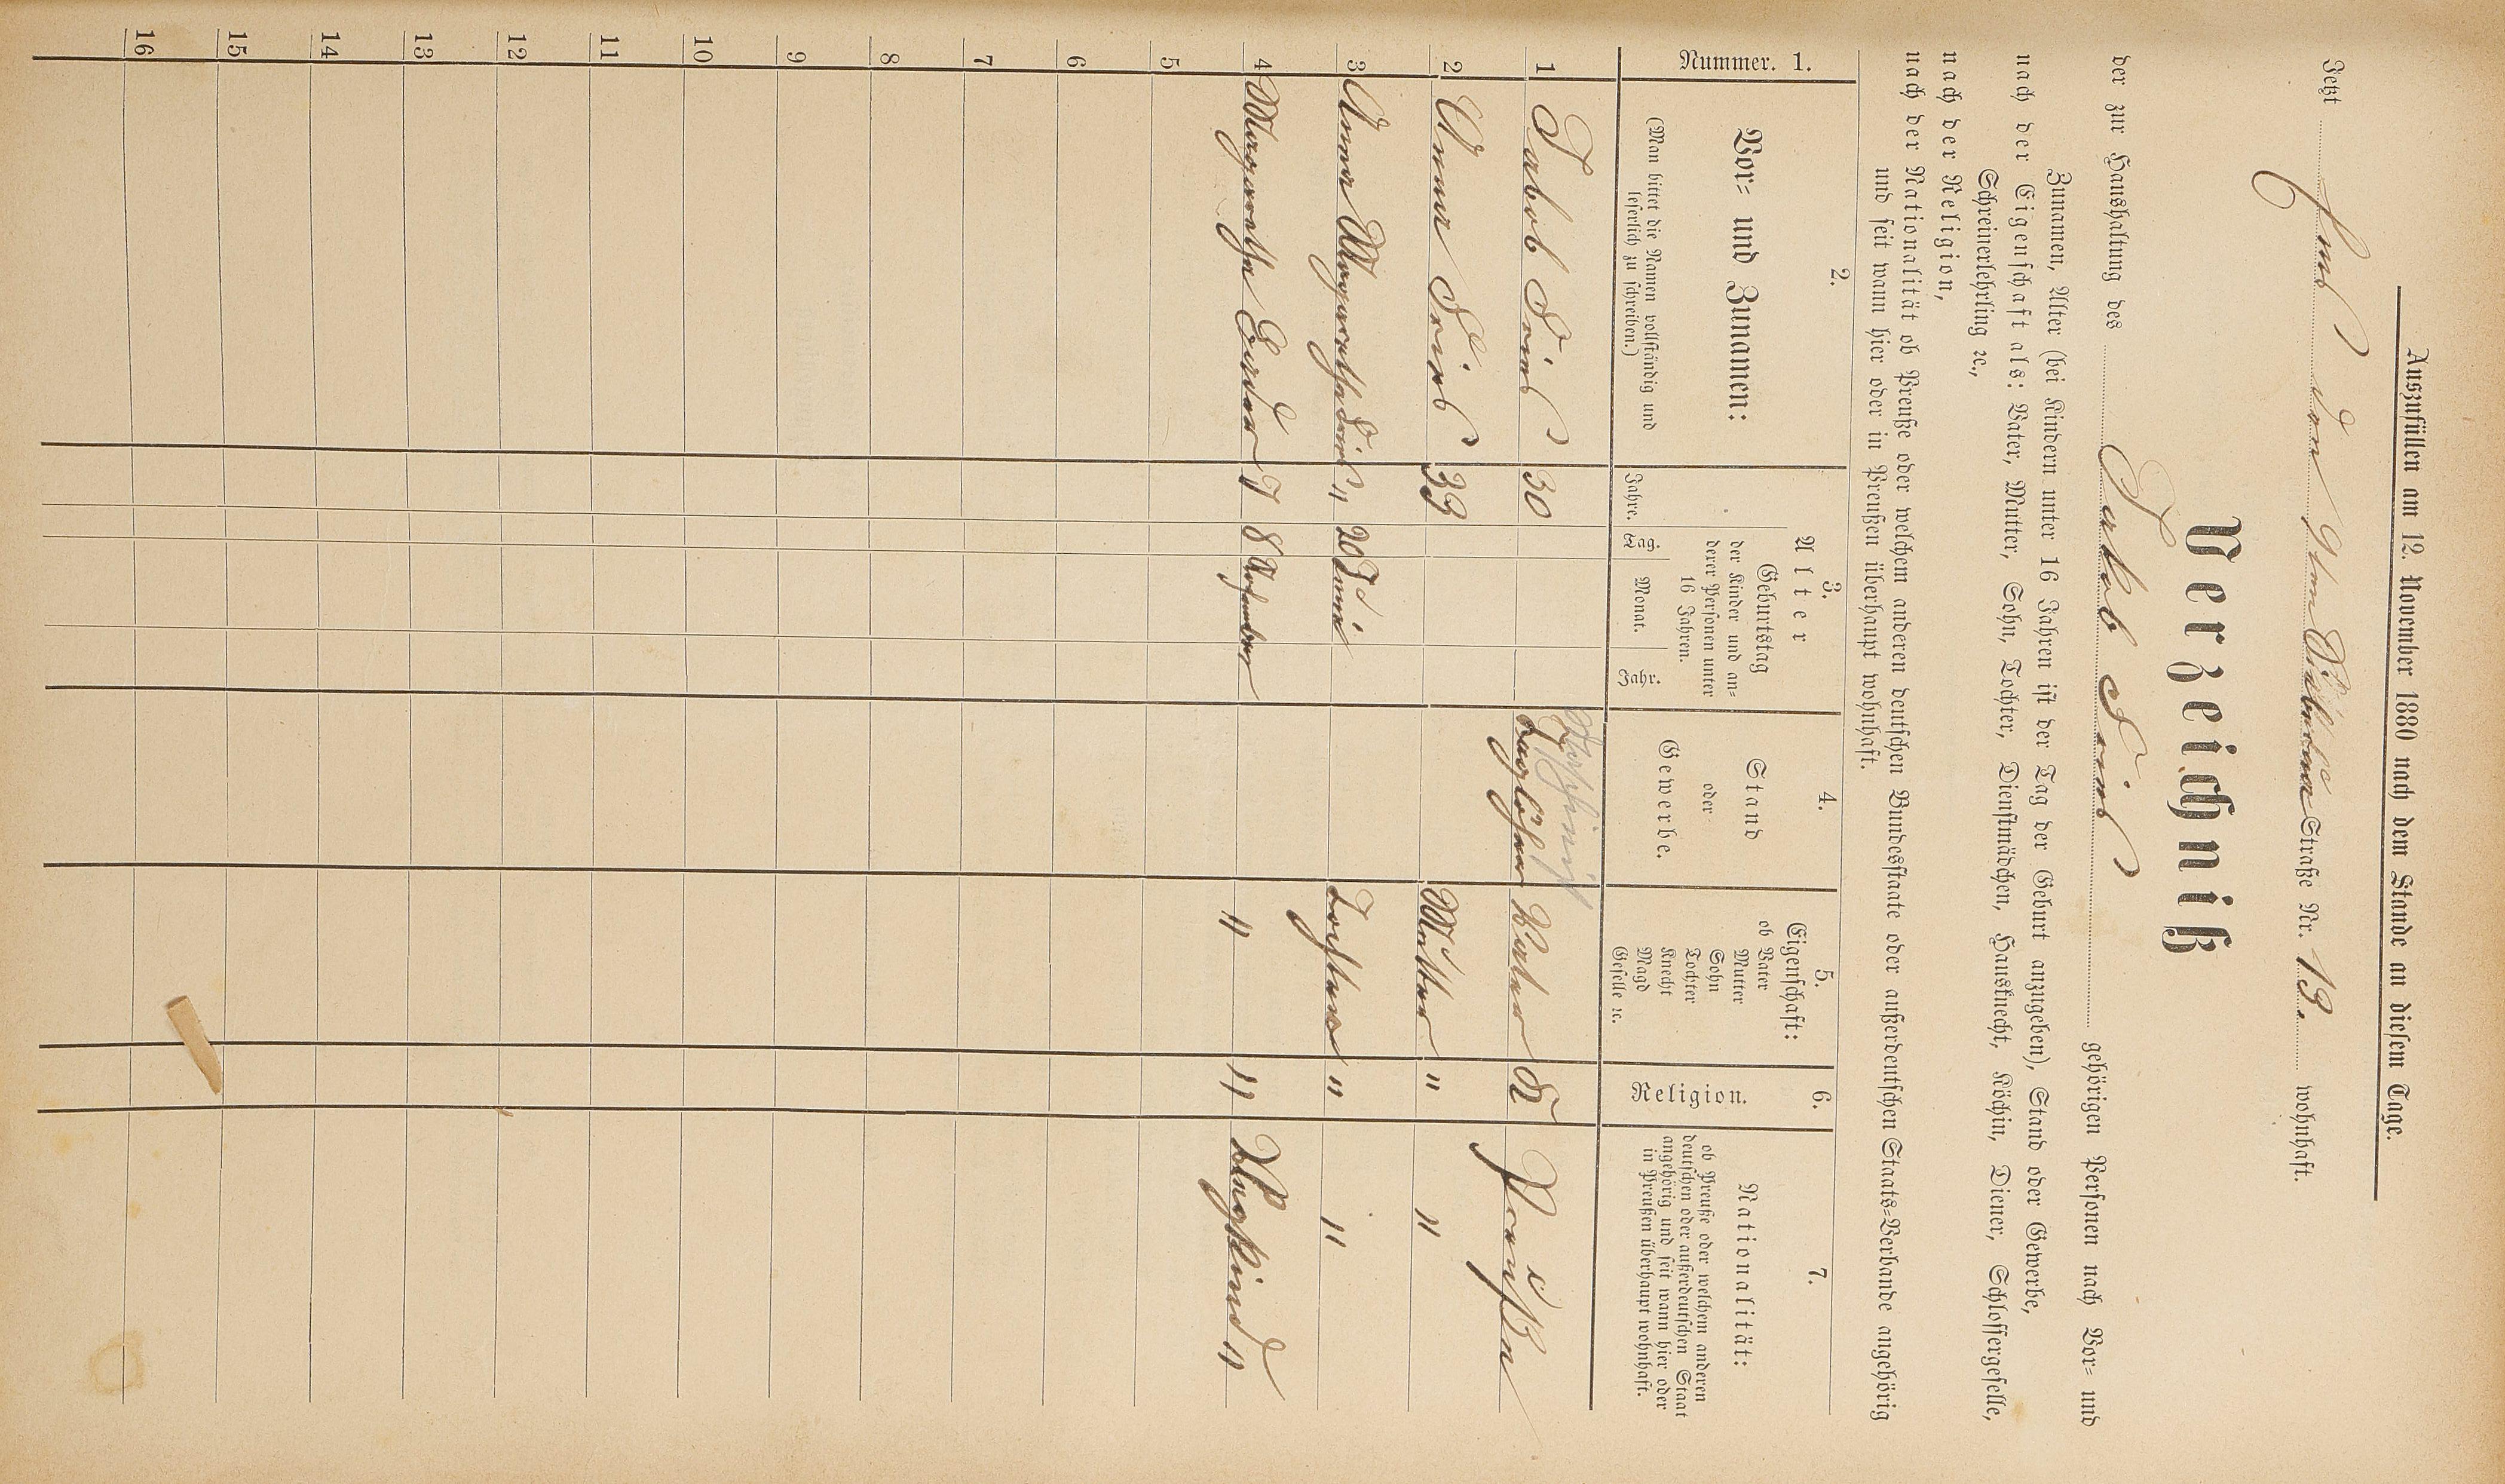 Auszufüllen am 12. November 1880 nach dem Stande an diesem Tage.
Jetzt Straße Nr. 13. wohnhaft.
Verzeichniß
der zur Haushaltung des Jakob gehörigen Personen nach Vor- und
Zunamen, Alter (bei Kindern unter 16 Jahren ist der Tag der Geburt anzugeben), Stand oder Gewerbe,
nach der Eigenschaft als: Vater, Mutter, Sohn, Tochter, Dienstmädchen, Hausknecht, Köchin, Diener, Schlossergeselle,
Schreinerlehrling ꝛc.,
nach der Religion,
nach der Nationalität ob Preuße oder welchem anderen deutschen Bundesstaate oder außerdeutschen Staats-Verbande angehörig
und seit wann hier oder in Preußen überhaupt wohnhaft.
1.
Nummer.
2.
Vor- und Zunamen:
(Man bittet die Namen vollständig und
leserlich zu schreiben.)
3.
Alter
Jahre.
Geburtstag
der Kinder und an-
derer Personen unter
16 Jahren.
Tag. Monat. Jahr.
4.
Stand
oder
Gewerbe.
5.
Eigenschaft:
ob Vater
Mutter
Sohn
Tochter
Knecht
Magd
Geselle ꝛc.
6.
Religion.
7.
Nationalität:
ob Preuße oder welchem anderen
deutschen oder außerdeutschen Staat
angehörig und seit wann hier oder
in Preußen überhaupt wohnhaft.
1 Jakob 30 Taglöhner Vater K Preußen
2 Anna 39 Mutter " "
3 Anna Margaretha " 20 Juni Tochter " "
4 Margaretha 7 8 November " " Pflegkind "
5
6
7
8
9
10
11
12
13
14
15
16